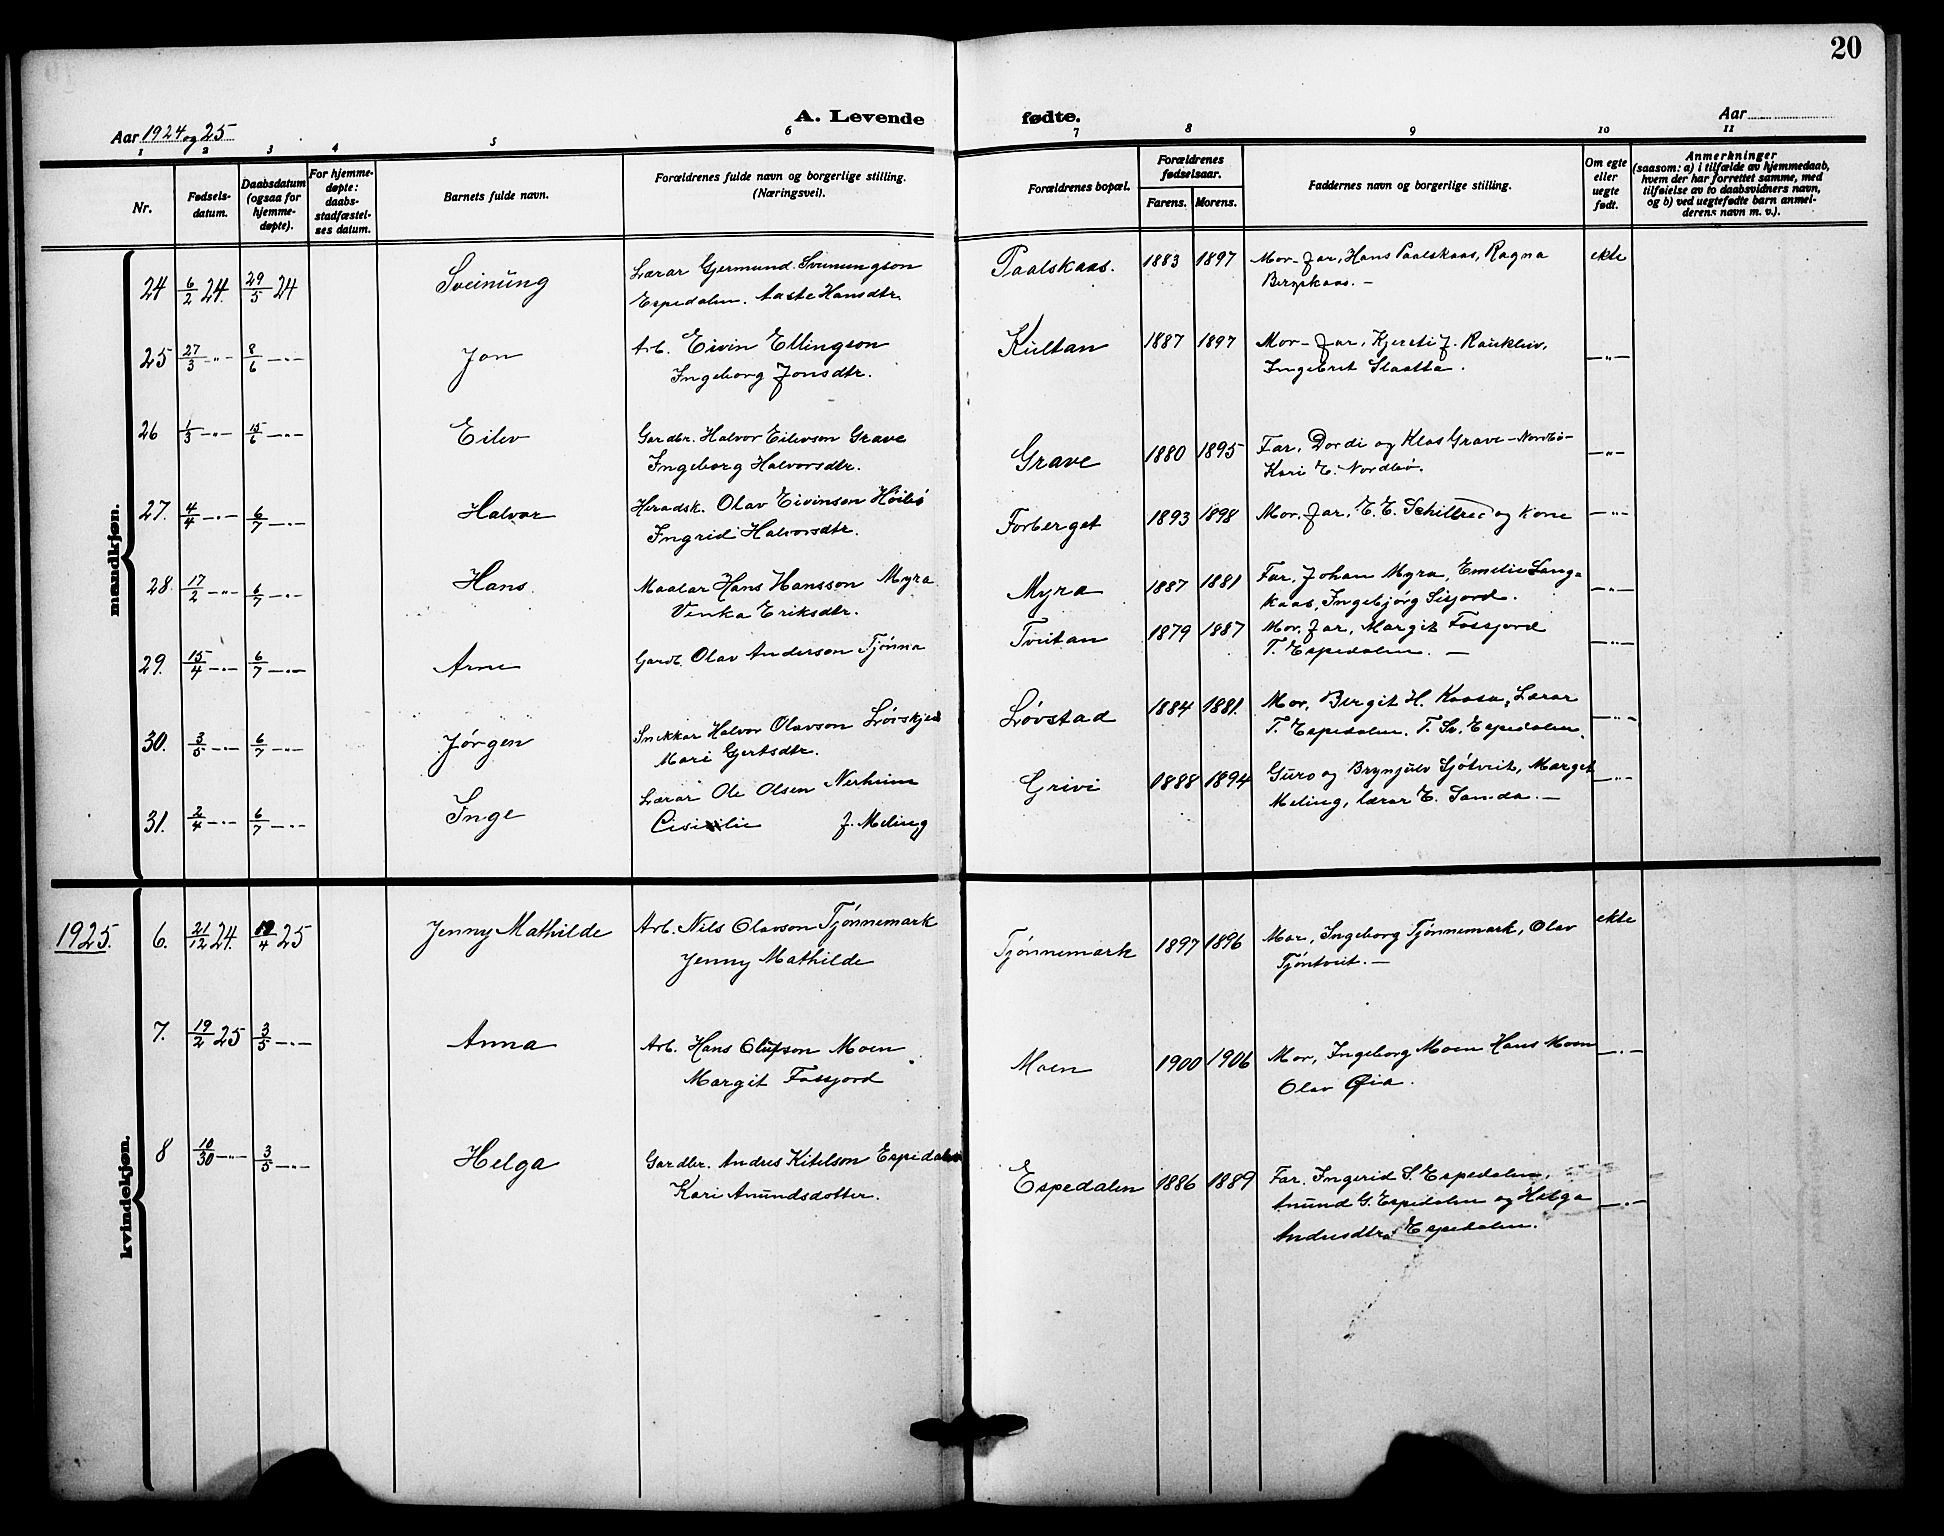 20
Aar 1924 og 25
A. Levende fødte.
Aar
1 2 3 4 5 6 7 8 9 10 11
Nr.
Fødsels-
datum.
Daabsdatum
(ogsaa for
hjemme-
døpte).
For hjemme-
døpte:
daabs-
stadfæstel-
ses datum.
Barnets fulde navn.
Forældrenes fulde navn og borgerlige stilling.
(Næringsvei).
Forældrenes bopæl.
Forældrenes
fødselsaar.
Farens. Morens.
Faddernes navn og borgerlige stilling.
Om egte
eller
uegte
født.
Anmerkninger
(saasom: a) i tilfælde av hjemmedaab,
hvem der har forrettet samme, med
tilføielse av to daabsvidners navn,
og b) ved uegtefødte barn anmel-
derens navn m. v.).
mandkjøn.
24 6/2 24. 29/5 24 Sveinung Lærar Gjermund Sveinungson Paalskaas. 1883 1897 Mor - far, Hans Paalskaas, Ragna ekte
Espedalen. Aaste Hansdtr. Bergskaas. -
25 27/3 -"- 8/6 -"- Jon Arb. Eivin Ellingson Kultan 1887 1897 Mor - far, Kjersti J. Raukleiv, -"-
Ingeborg Jonsdtr. Ingebret Slaatta.
26 1/3 -"- 15/6 -"- Eilev Gardbr. Halvor Eilevson Grave Grave 1880 1895 Far, Dordi og Klas Grave - Nordbø - -"-
Ingeborg Halvorsdtr. Kari E. Nordbø.
27. 4/4 -"- 6/7 -"- Halvor Heradsk. Olav Eivinson Høibø Forberget 1893 1898 Mor, far, E. E. Schiltred og kone -"-
Ingrid Halvorsdtr.
28. 17/2 -"- 6/7 -"- Hans Maalar Hans Hansson Myra Myra 1887 1881 Far, Johan Myra, Emelie Langa
Venka Eriksdtr. kaas, Ingebjørg Sisjord. -"-
29. 15/4 -"- 6/7 -"- Arne Gardb. Olav Anderson Tjønna Tveitan 1879 1887 Mor, far, Margit Fossjord
T. Espedalen. - -"-
30. 3/5 -"- 6/7 -"- Jørgen Snikkar Halvor Olavson Løvskjed Løvstad 1884 1881. Mor, Bergit H. Kaasa, Lærar
Mari Gjertsdtr. T. Espedalen. T. Sv. Espedalen. -"-
31. 2/4 -"- 6/7 -"- Inge Lærar Ole Olsen Nerheim Grivi 1888 1894 Guro og Brynjulv Sjøtveit, Marget -"-
Cisilie f. Meling Meling, lærar E. Sanda. -
kvindekjøn.
1925. 6. 21/12 24. 19/4 25 Jenny Mathilde Arb. Nils Olavson Tjønnemark Tjønnemark 1897 1896 Mor, Ingeborg Tjønnemark, Olav ekte
Jenny Mathilde Tjøntveit. -
7. 19/2 25 3/5 -"- Anna Arb. Hans Olufson Moen Moen 1900 1906 Mor, Ingeborg Moen Hans Moen -"-
Margit Fossjord Olav Øia.
8 10/30 -"- 3/5 -"- Helga Gardbr. Andres Kitelson Espedalen Espedalen 1886 1889 Far. Ingerid S. Espedalen,
Kari Anundsdotter. Anund G. Espedalen og Helga -"-
Andresdtr. Espedalen.